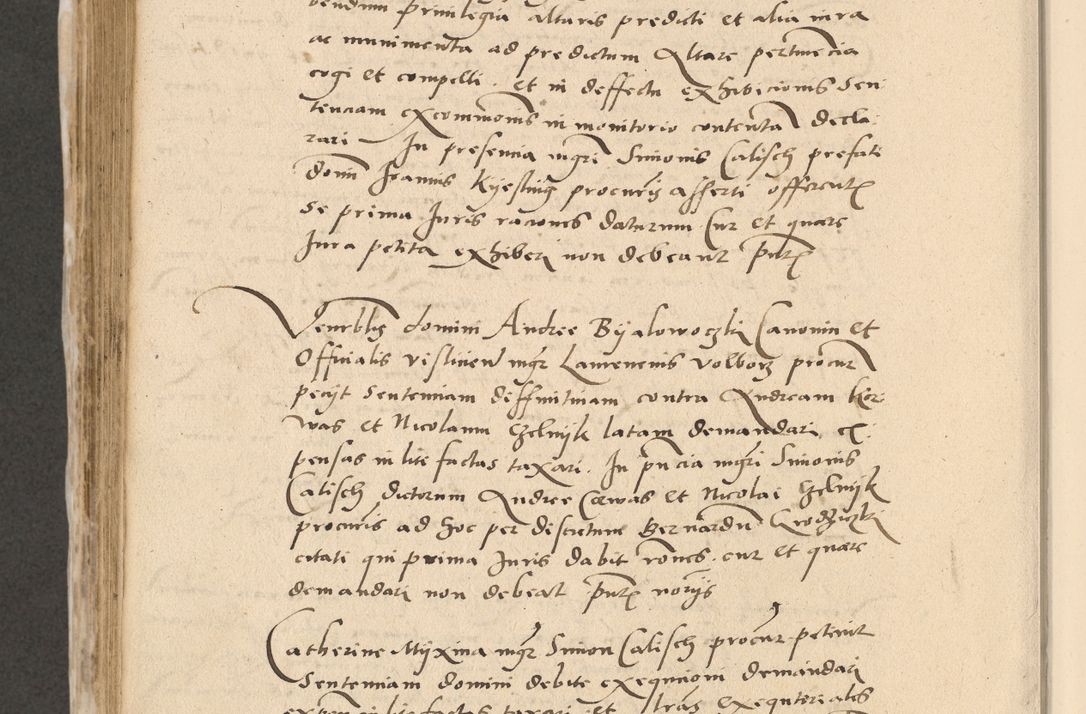 bendum privilegia altaris predicti et alia iura
ac munimenta ad predictum Altare pertinecia
cogi et compelli. et in deffectu exhibicionis sen
tenciam excommonis in monitorio contenta decla
rari In presencia mgri Simonis Calisch prefati
domi Joannis Kyesling procuris asserti offerentis
se prima Juris raciones daturum Cur et quare
Jura petita exhiberi non debeant Pntibz
Venrblis domini Andree Byalowoczki Canonici et
Officialis vislicien mgr Laurencius Volborz procur
pecyt sentenciam diffinitivam contra Andream Kor
was et Nicolaum Czelnyk latam demandari, ex
pensas in lite factas taxari. In pncia mgri Simonis
Calisch dictorum Andree Corwas et Nicolai Czelnyk
procuris ad hoc per discretum Bernardu Grodziczki
citati qui prima Juris dabit rones. cur et quare
demandari non debeat Pntibz notriis
Catherine Myxina mgr Simon Calisch procur petivit
Sentenciam domini debite exequcioni demandari
expen in lite factas taxari et lras exequtoriales